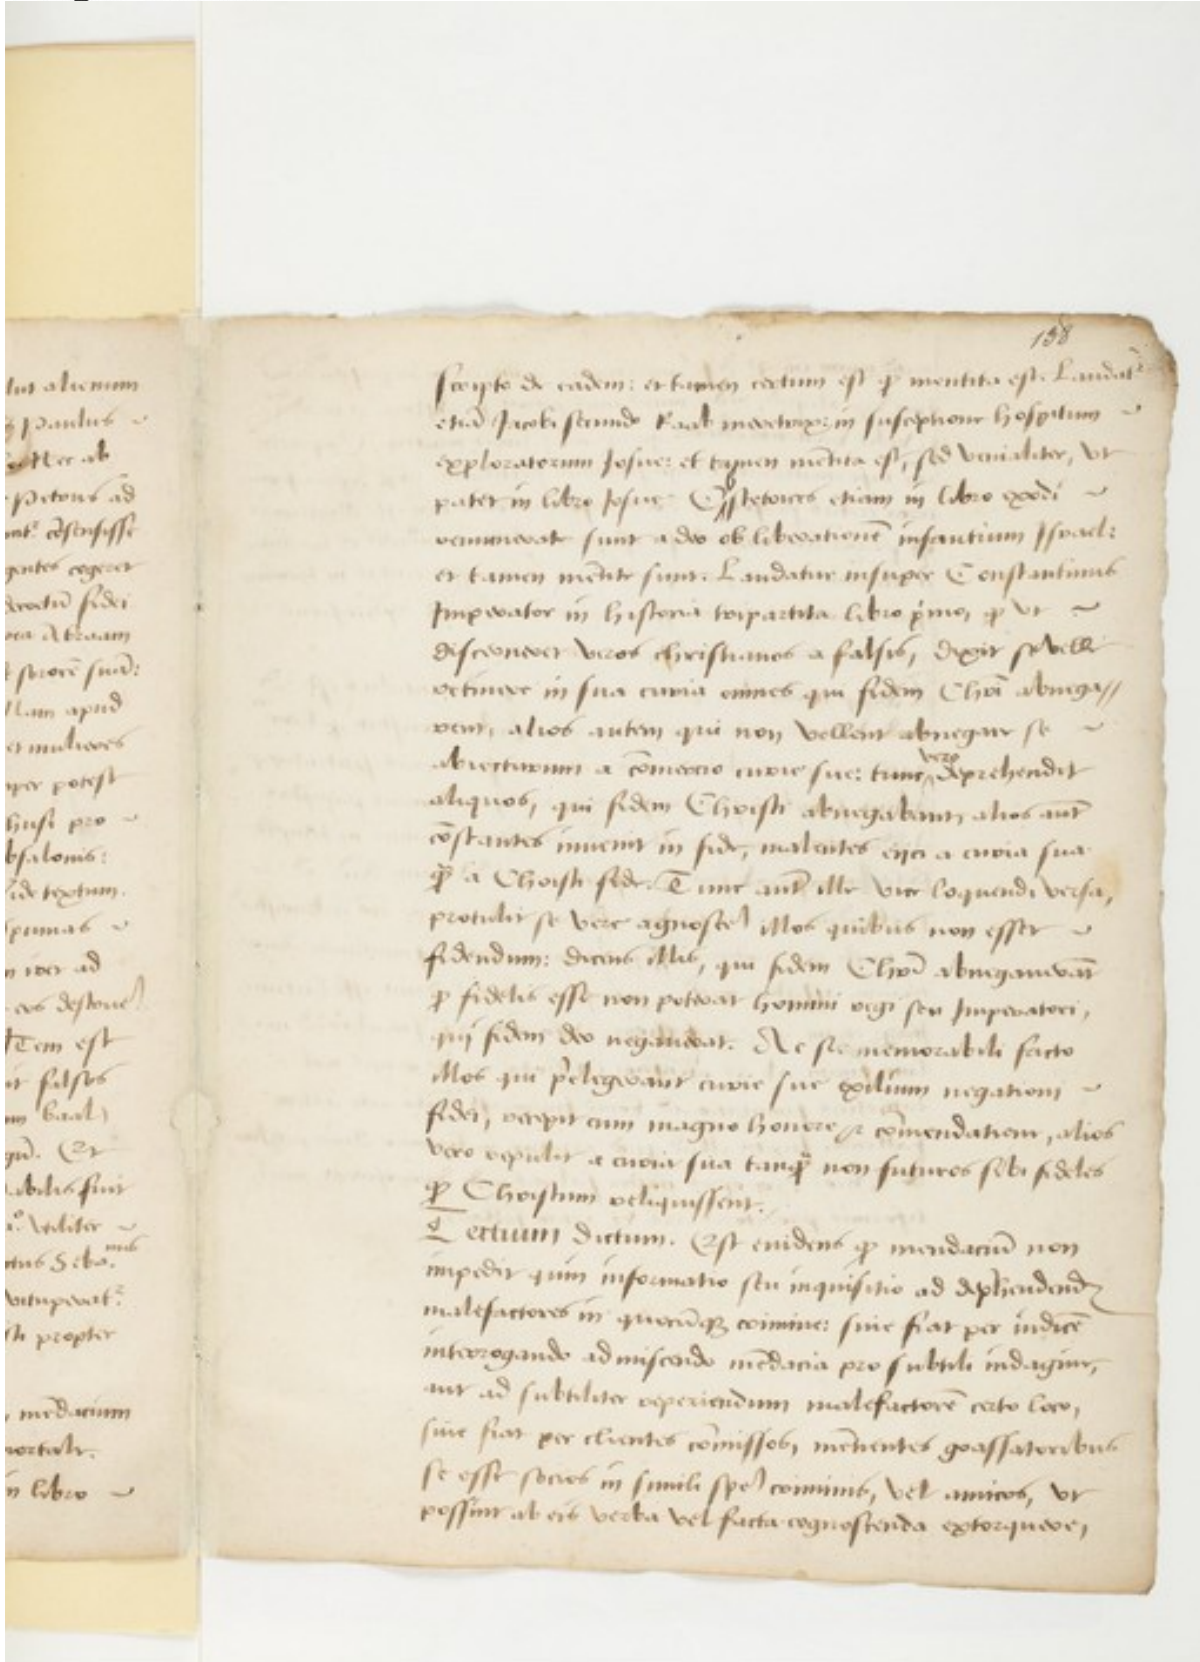 lut alienum
Paulus ~
Nec ab
Petrus ad
cōsensisse
gentes cogeret
fidei
Abraam
sororē suā:
llam apud
et mulieres
nper potest
husi pro ~
bsalonis:
ide textum.
spumas ~
iter ad
eos destrue
ITem est
falsis
baal
Et
abilis fuit
Vtiliter ~
vituperat.
sti propter
mēdacium
mortale.
n libro ~
138
scripto de eadem: et tamen certum est ꝙ mentita est. Laudat᷑
etiā Jacobi secundo Raab meretrix in susceptione hospitum ~
exploratorum Josue: et tamen mētita est, sed venialiter, vt
patet in libro Josue. Obstetrices etiam in libro exodi ~
remunerate sunt a deo ob liberationē infantium Israel:
et tamen mētite sunt. Laudatur insuper Constantinus
Imperator in historia tripartita libro p̄mo, ꝙ vt ~
discerneret veros christianos a falsis, dixit se velle
retinere in sua curia omnes qui fidem Chri̅ abnega//
rent, alios autem qui non vellent abnegare se ~
abiecturum a cōmercio curie sue: tunc vero deprehendit
aliquos, qui fidem Christi abnegabant, alios aut̄
cōstantes inuenit in fide, malentes eijci a curia sua
ꝙ̄ a Christi fide. Tunc aut̄ ille vice loquendi versa,
protulit se vere agnosce illos quibus non esset ~
fidendum: dicens illis, qui fidem Chri̅ abnegauerāt
ꝙ fidelis esse non poterat homini regi seu Imperatori,
qui fidem deo negauerat. Ac sic memorabili facto
illos qui p̄elegerant curie sue exilium negationi ~
fidei, recepit cum magno honore & cōmendatione, alios
vero repulit a curia sua tanꝙ̄ non futuros sibi fideles
ꝙ Christum reliquissent.
Tertium dictum. Est euidens ꝙ mendaciū non
impedit quin informatio seu inquisitio ad dep̄hendend
malefactores in quocūqꝫ crimine: siue fiat per iudicē
interrogando admiscendo mēdacia pro subtili indagine,
aut ad subtiliter reperiendum malefactorē certo loco,
siue fiat per clientes cōmissos, mētientes grassatoribus
se esse socios in simili spe criminis, vel amicos, vt
possint ab eis verba vel facta cognoscenda extorquere,